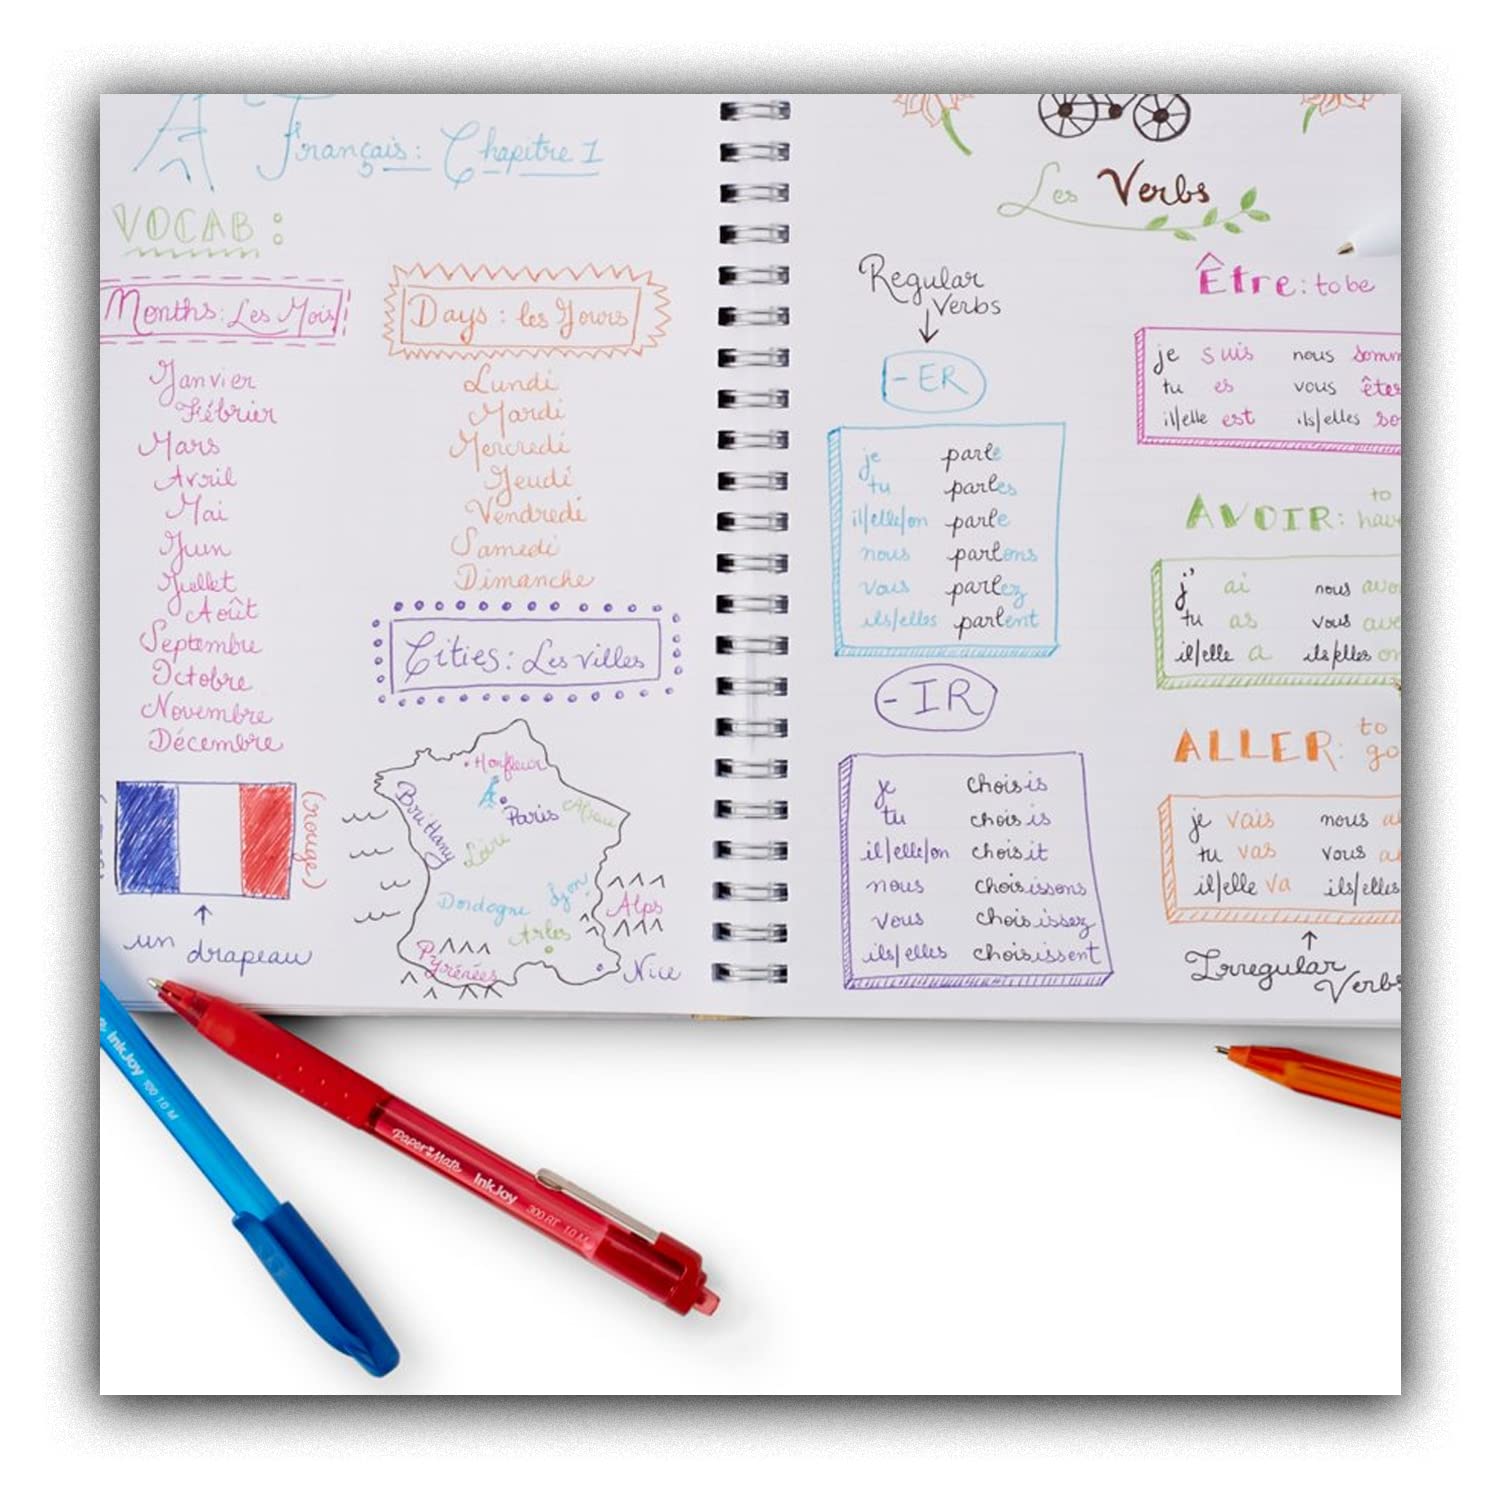 Français: Chapitre 1
VOCAB:
Months: Les Mois
Janvier
Fébrier
Mars
Avril
Mai
Juin
Juillet
Août
Septembre
Octobre
Novembre
Décembre
(rouge)
un drapeau
Days: les Jours
Lundi
Mardi
Mercredi
Jeudi
Vendredi
Samedi
Dimanche
Cities: Les Villes
Honfleur
Brittany
Paris
Alsace
Loire
Dordogne
Lyon
Alps
Arles
Pyrénées
Nice
Les Verbs
Regular
Verbs
-ER
je parle
tu parles
il/elle/on parle
nous parlons
vous parlez
ils/elles parlent
-IR
je choisis
tu choisis
il/elle/on choisit
nous choisissons
vous choisissez
ils/elles choisissent
Être: to be
je suis nous somm
tu es vous êtes
il/elle est ils/elles so
AVOIR: to
have
j' ai nous avo
tu as vous ave
il/elle a ils/elles on
ALLER: to
go
je vais nous a
tu vas vous a
il/elle va ils/elles
Irregular
Verbs
InkJoy 100 1.0 M
Paper Mate InkJoy 300 RT 1.0 M